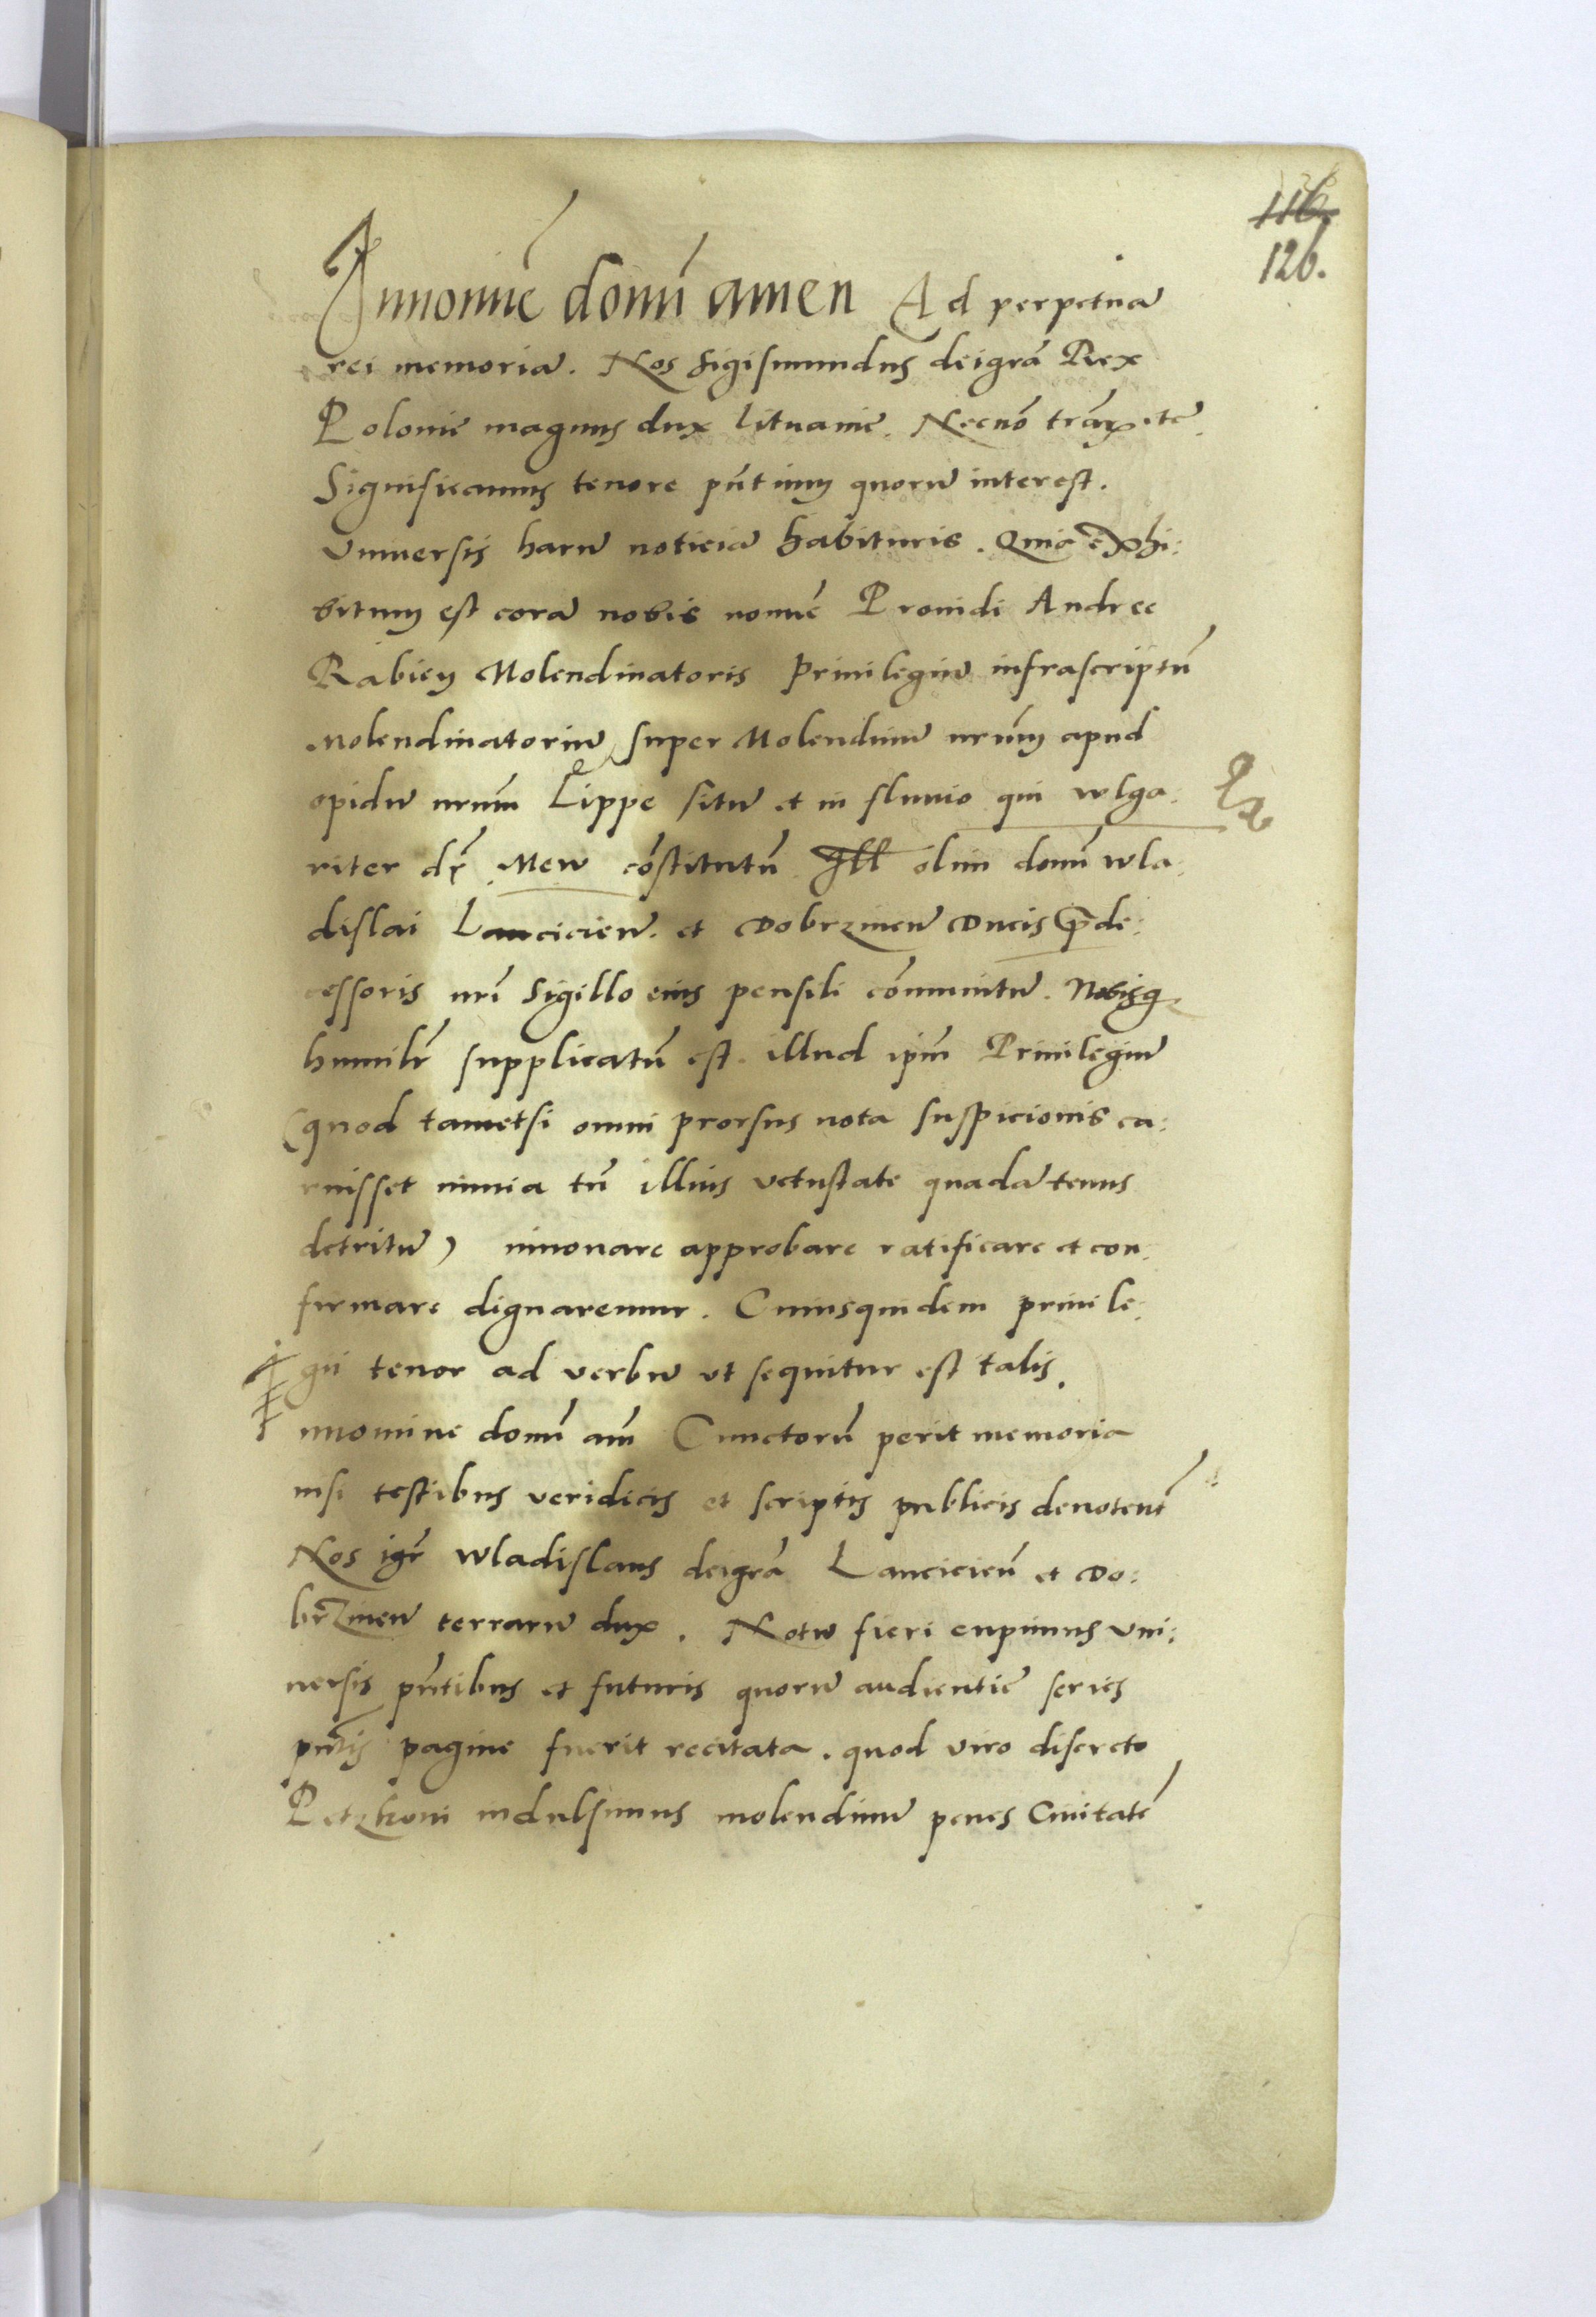 116.
126.
Innomīe domī amen Ad perpetuā
rei memoriā. Nos Sigismundus deigrā Rex
Polonie magnus dux lituanie. Necnō trāꝝ etc̄.
Significamus tenore pn̄tium quorū interest.
Vniuersis harū noticiā habituris. Quia exhi:
bitum est corā nobis nomīe Prouidi Andree
Rabiey Molendinatoris Priuilegiū infrascriptū
Molendinatoriū super Molendinū nrūm apud
opidū nrūm Lippe sitū et in fluuio qui wlga:
riter dr̄ Mew cōstitutū Ill olim domī wla:
dislai Lancicien̄. et Dobrzinen̄ Ducis p̄de:
cessoris nrī Sigillo eius pensili cōmunitū. Nobisq
humilr̄ supplicatū est. illud ipm̄ Priuilegiū
(quod tametsi omni prorsus nota suspicionis ca:
ruisset nimia tn̄ illius vetustate quadātenus
detritū) innouare approbare ratificare et con:
firmare dignaremur. Cuiusquidem priuile:
gii tenor ad verbū vt sequitur est talis.
I nnomine domī am̄ Cunctorū perit memoria
nisi testibus veridicis et scriptis publicis denotent̄
Nos igr̄ wladislaus deigrā Lancicien̄ et Do:
brzinen̄ terrarū dux. Notū fieri cupimus vni:
uersis pn̄tibus et futuris quorū audientie series
pn̄tis pagine fuerit recitata. quod viro discreto
Petzkoni indulsimus molendinū penes Ciuitatē